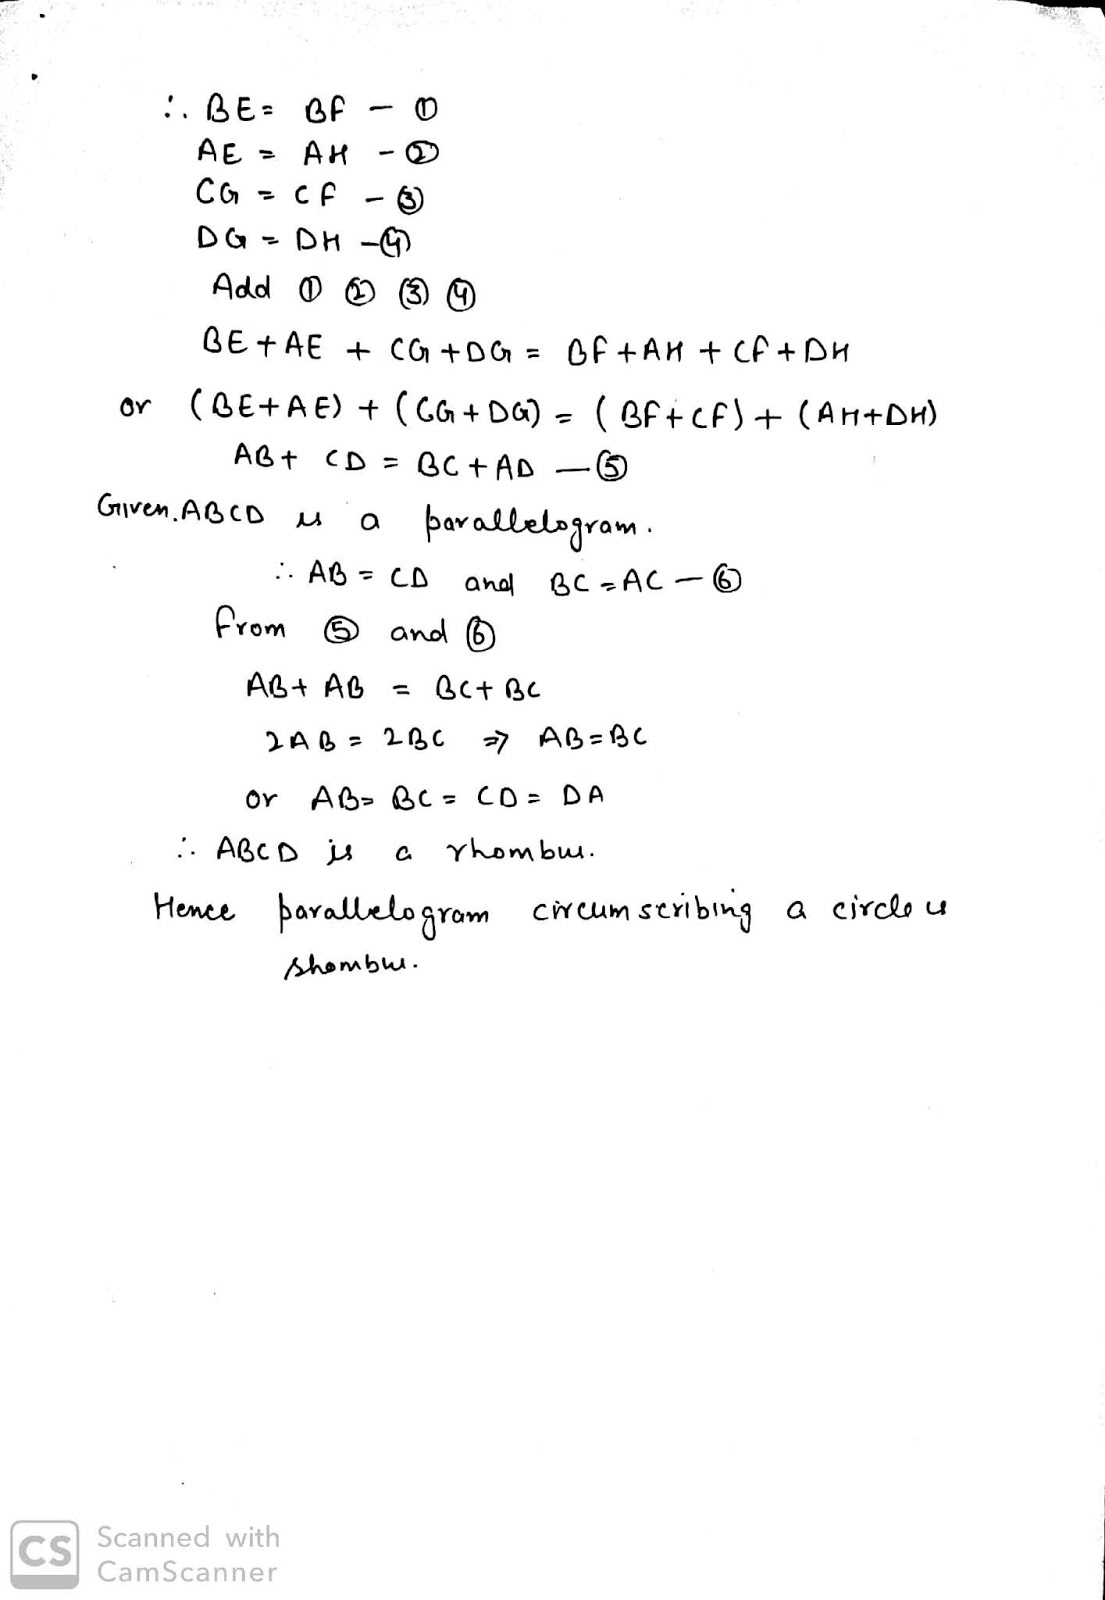 ∴ BE = BF - ①
AE = AH - ②
CG = CF - ③
DG = DH - ④
Add ① ② ③ ④
BE + AE + CG + DG = BF + AH + CF + DH
or (BE + AE) + (CG + DG) = (BF + CF) + (AH + DH)
AB + CD = BC + AD - ⑤
Given. ABCD is a parallelogram.
∴ AB = CD and BC = AC - ⑥
from ⑤ and ⑥
AB + AB = BC + BC
2AB = 2BC ⇒ AB = BC
or AB = BC = CD = DA
∴ ABCD is a rhombus.
Hence parallelogram circumscribing a circle is
rhombus.
CS Scanned with
CamScanner